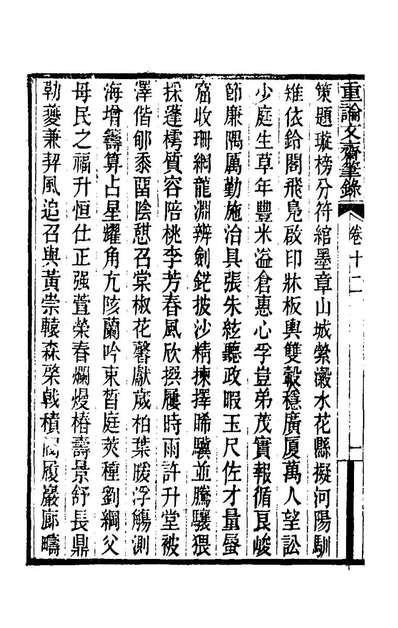 重論文齋筆錄 卷十二 一
策題璇榜分符綰墨章山城縈瀲水花縣擬河陽馴
雉依鈴閣飛鳧啟印牀板輿雙轂穩廣厦萬人望訟
少庭生草年豐米溢倉惠心孚豈弟茂實報循良峻
節廉隅厲勤施治具張朱絃聽政暇玉尺佐才量蜃
窟收珊網龍淵辨劍鋩披沙精揀擇晞驥並騰驤猥
採蓬樗質容陪桃李芳春風欣撰屨時雨許升堂被
澤偕郇黍畱陰憇召棠椒花馨獻歲柏葉牋浮觴測
海增籌算占星耀角亢陔蘭吟束晳庭莢種劉綱父
母民之福升恒仕正强萱榮春爛熳椿壽景舒長鼎
勒夔兼契風追召與黃崇轅森棨戟積閥履巖廊疇